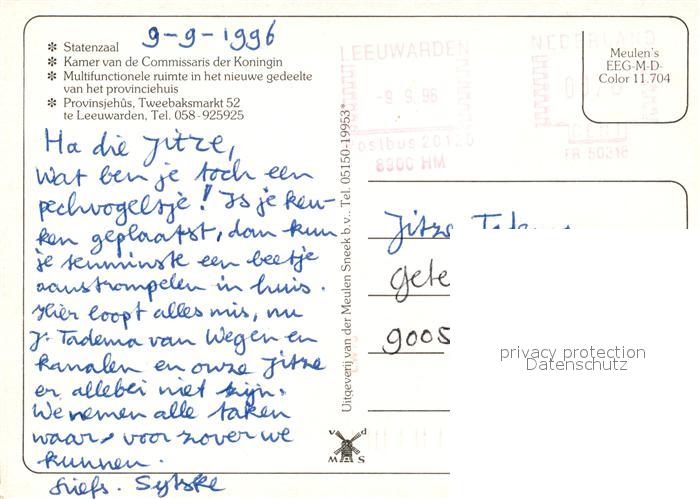 9-9-1996
✻ Statenzaal
✻ Kamer van de Commissaris der Koningin
✻ Multifunctionele ruimte in het nieuwe gedeelte
van het provinciehuis
✻ Provinsjehûs, Tweebaksmarkt 52
te Leeuwarden, Tel. 058-925925
Ha die Jitze,
Wat ben je toch een
pechvogeltje! Is je keu-
ken geplaatst, dan kun
je tenminste een beetje
aanstrompelen in huis.
Hier loopt alles mis, nu
J. Tadema van Wegen en
kanalen en onze Jitze
er allebei niet zijn.
We nemen alle taken
waar, voor zover we
kunnen.
Liefs. Sytske
Uitgeverij van der Meulen Sneek b.v. Tel. 05150-19953*
LEEUWARDEN
-9.9.96
Postbus 20120
8900 HM
NEDERLAND
CENT
FR 50318
Meulen's
EEG-M-D-
Color 11.704
Jitze Tadema
9005
v d
M S
privacy protection
Datenschutz